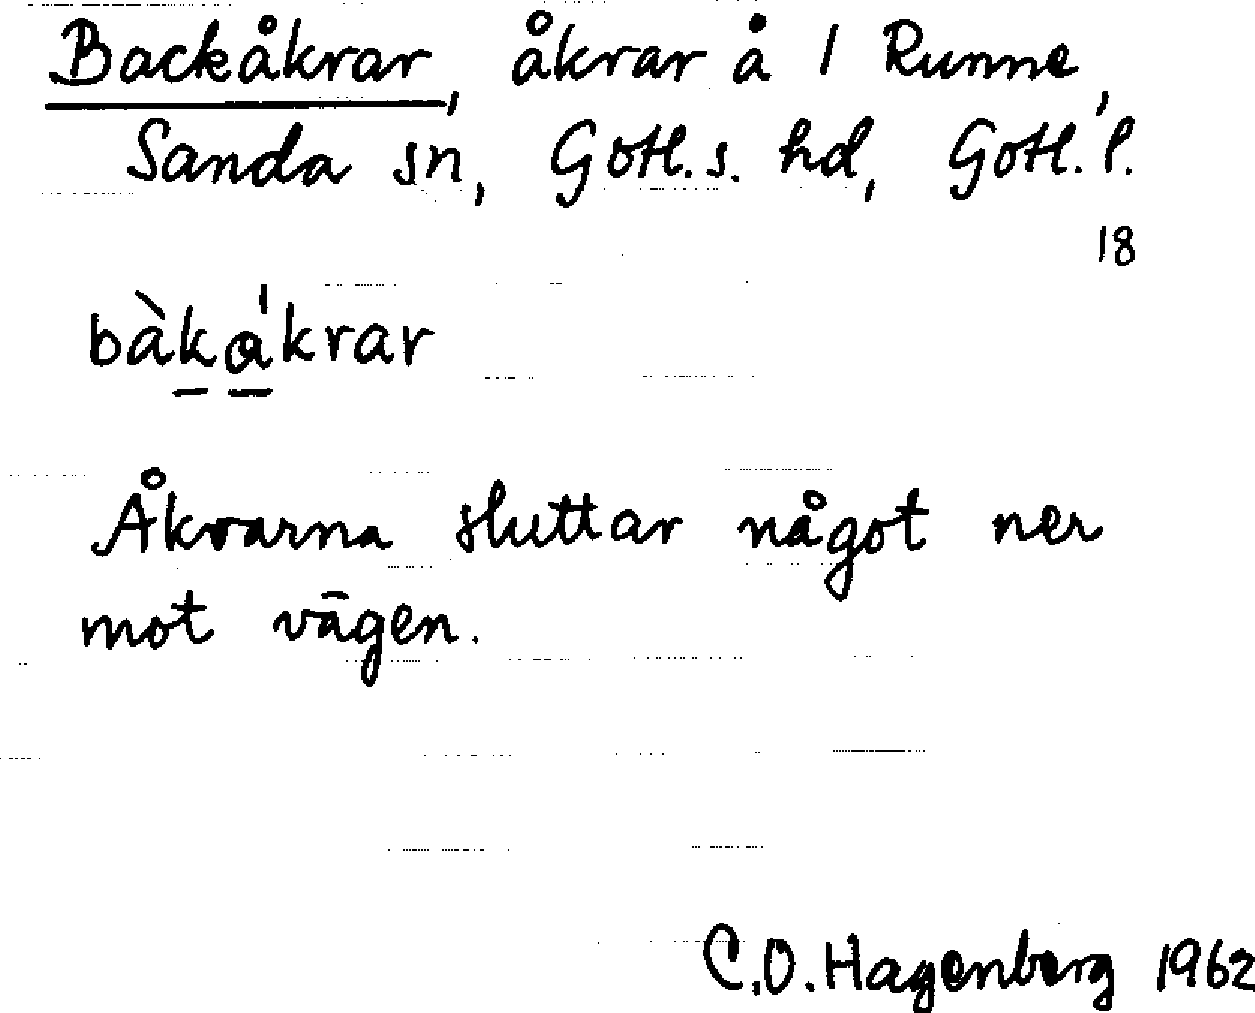 Backåkrar, åkrar å 1 Runne,
Sanda sn, Gotl. s. hd, Gotl. l.
18
bàkákrar
Åkrarna sluttar något ner
mot vägen.
C.O. Hagenberg 1962